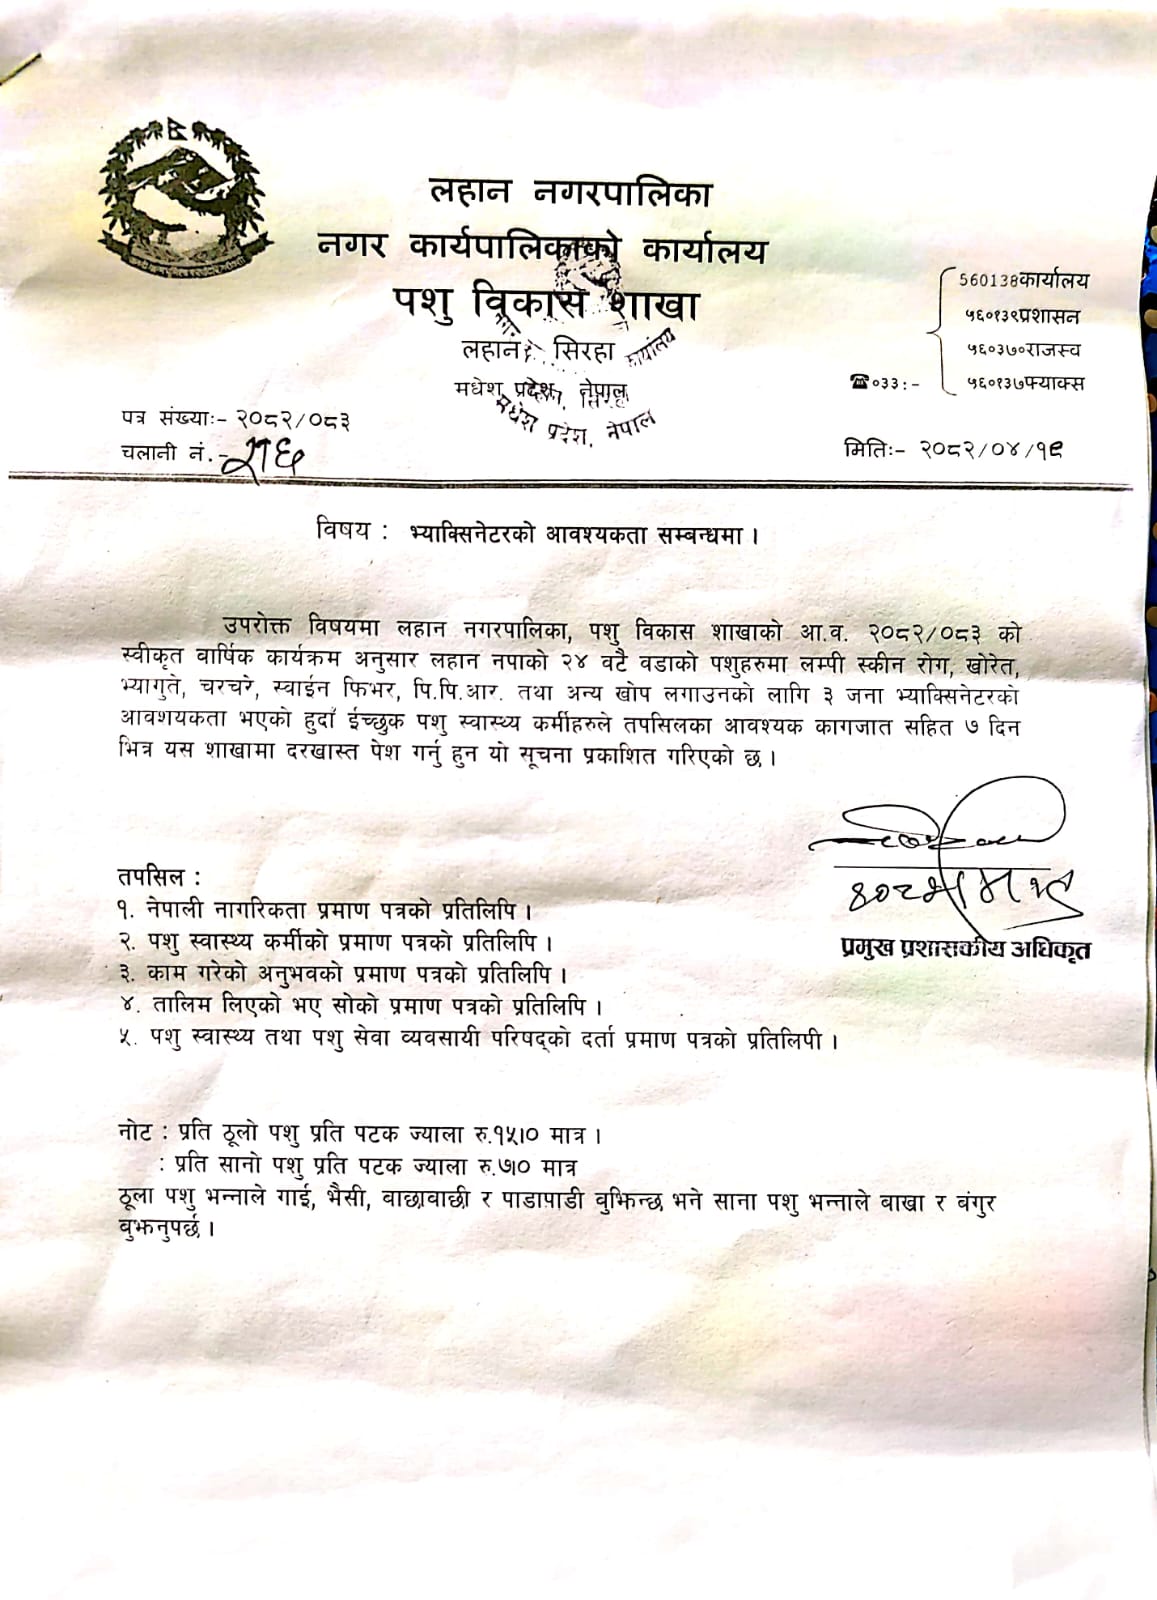 लहान नगरपालिका
नगर कार्यपालिकाको कार्यालय
पशु विकास शाखा
लहान, सिरहा
मधेश प्रदेश, नेपाल
कार्यालय
मधेश प्रदेश, नेपाल
560138कार्यालय
५६०१३९प्रशासन
५६०३७०राजस्व
☎०३३:- ५६०१३७फ्याक्स
पत्र संख्याः- २०८२/०८३
चलानी नं.-
मितिः- २०८२/०४/१९
विषय : भ्याक्सिनेटरको आवश्यकता सम्बन्धमा ।
उपरोक्त विषयमा लहान नगरपालिका, पशु विकास शाखाको आ.व. २०८२/०८३ को
स्वीकृत वार्षिक कार्यक्रम अनुसार लहान नपाको २४ वटै वडाको पशुहरुमा लम्पी स्कीन रोग, खोरेत,
भ्यागुते, चरचरे, स्वाईन फिभर, पि.पि.आर. तथा अन्य खोप लगाउनको लागि ३ जना भ्याक्सिनेटरको
आवशयकता भएको हुदाँ ईच्छुक पशु स्वास्थ्य कर्मीहरुले तपसिलका आवश्यक कागजात सहित ७ दिन
भित्र यस शाखामा दरखास्त पेश गर्नु हुन यो सूचना प्रकाशित गरिएको छ ।
प्रमुख प्रशासकीय अधिकृत
तपसिल :
१. नेपाली नागरिकता प्रमाण पत्रको प्रतिलिपि ।
२. पशु स्वास्थ्य कर्मीको प्रमाण पत्रको प्रतिलिपि ।
३. काम गरेको अनुभवको प्रमाण पत्रको प्रतिलिपि ।
४. तालिम लिएको भए सोको प्रमाण पत्रको प्रतिलिपि ।
५. पशु स्वास्थ्य तथा पशु सेवा व्यवसायी परिषद्को दर्ता प्रमाण पत्रको प्रतिलिपी ।
नोट : प्रति ठूलो पशु प्रति पटक ज्याला रु.१५।० मात्र ।
: प्रति सानो पशु प्रति पटक ज्याला रु.७।० मात्र
ठूला पशु भन्नाले गाई, भैसी, बाछाबाछी र पाडापाडी वुझिन्छ भने साना पशु भन्नाले बाखा र बंगुर
बुझनुपर्छ ।